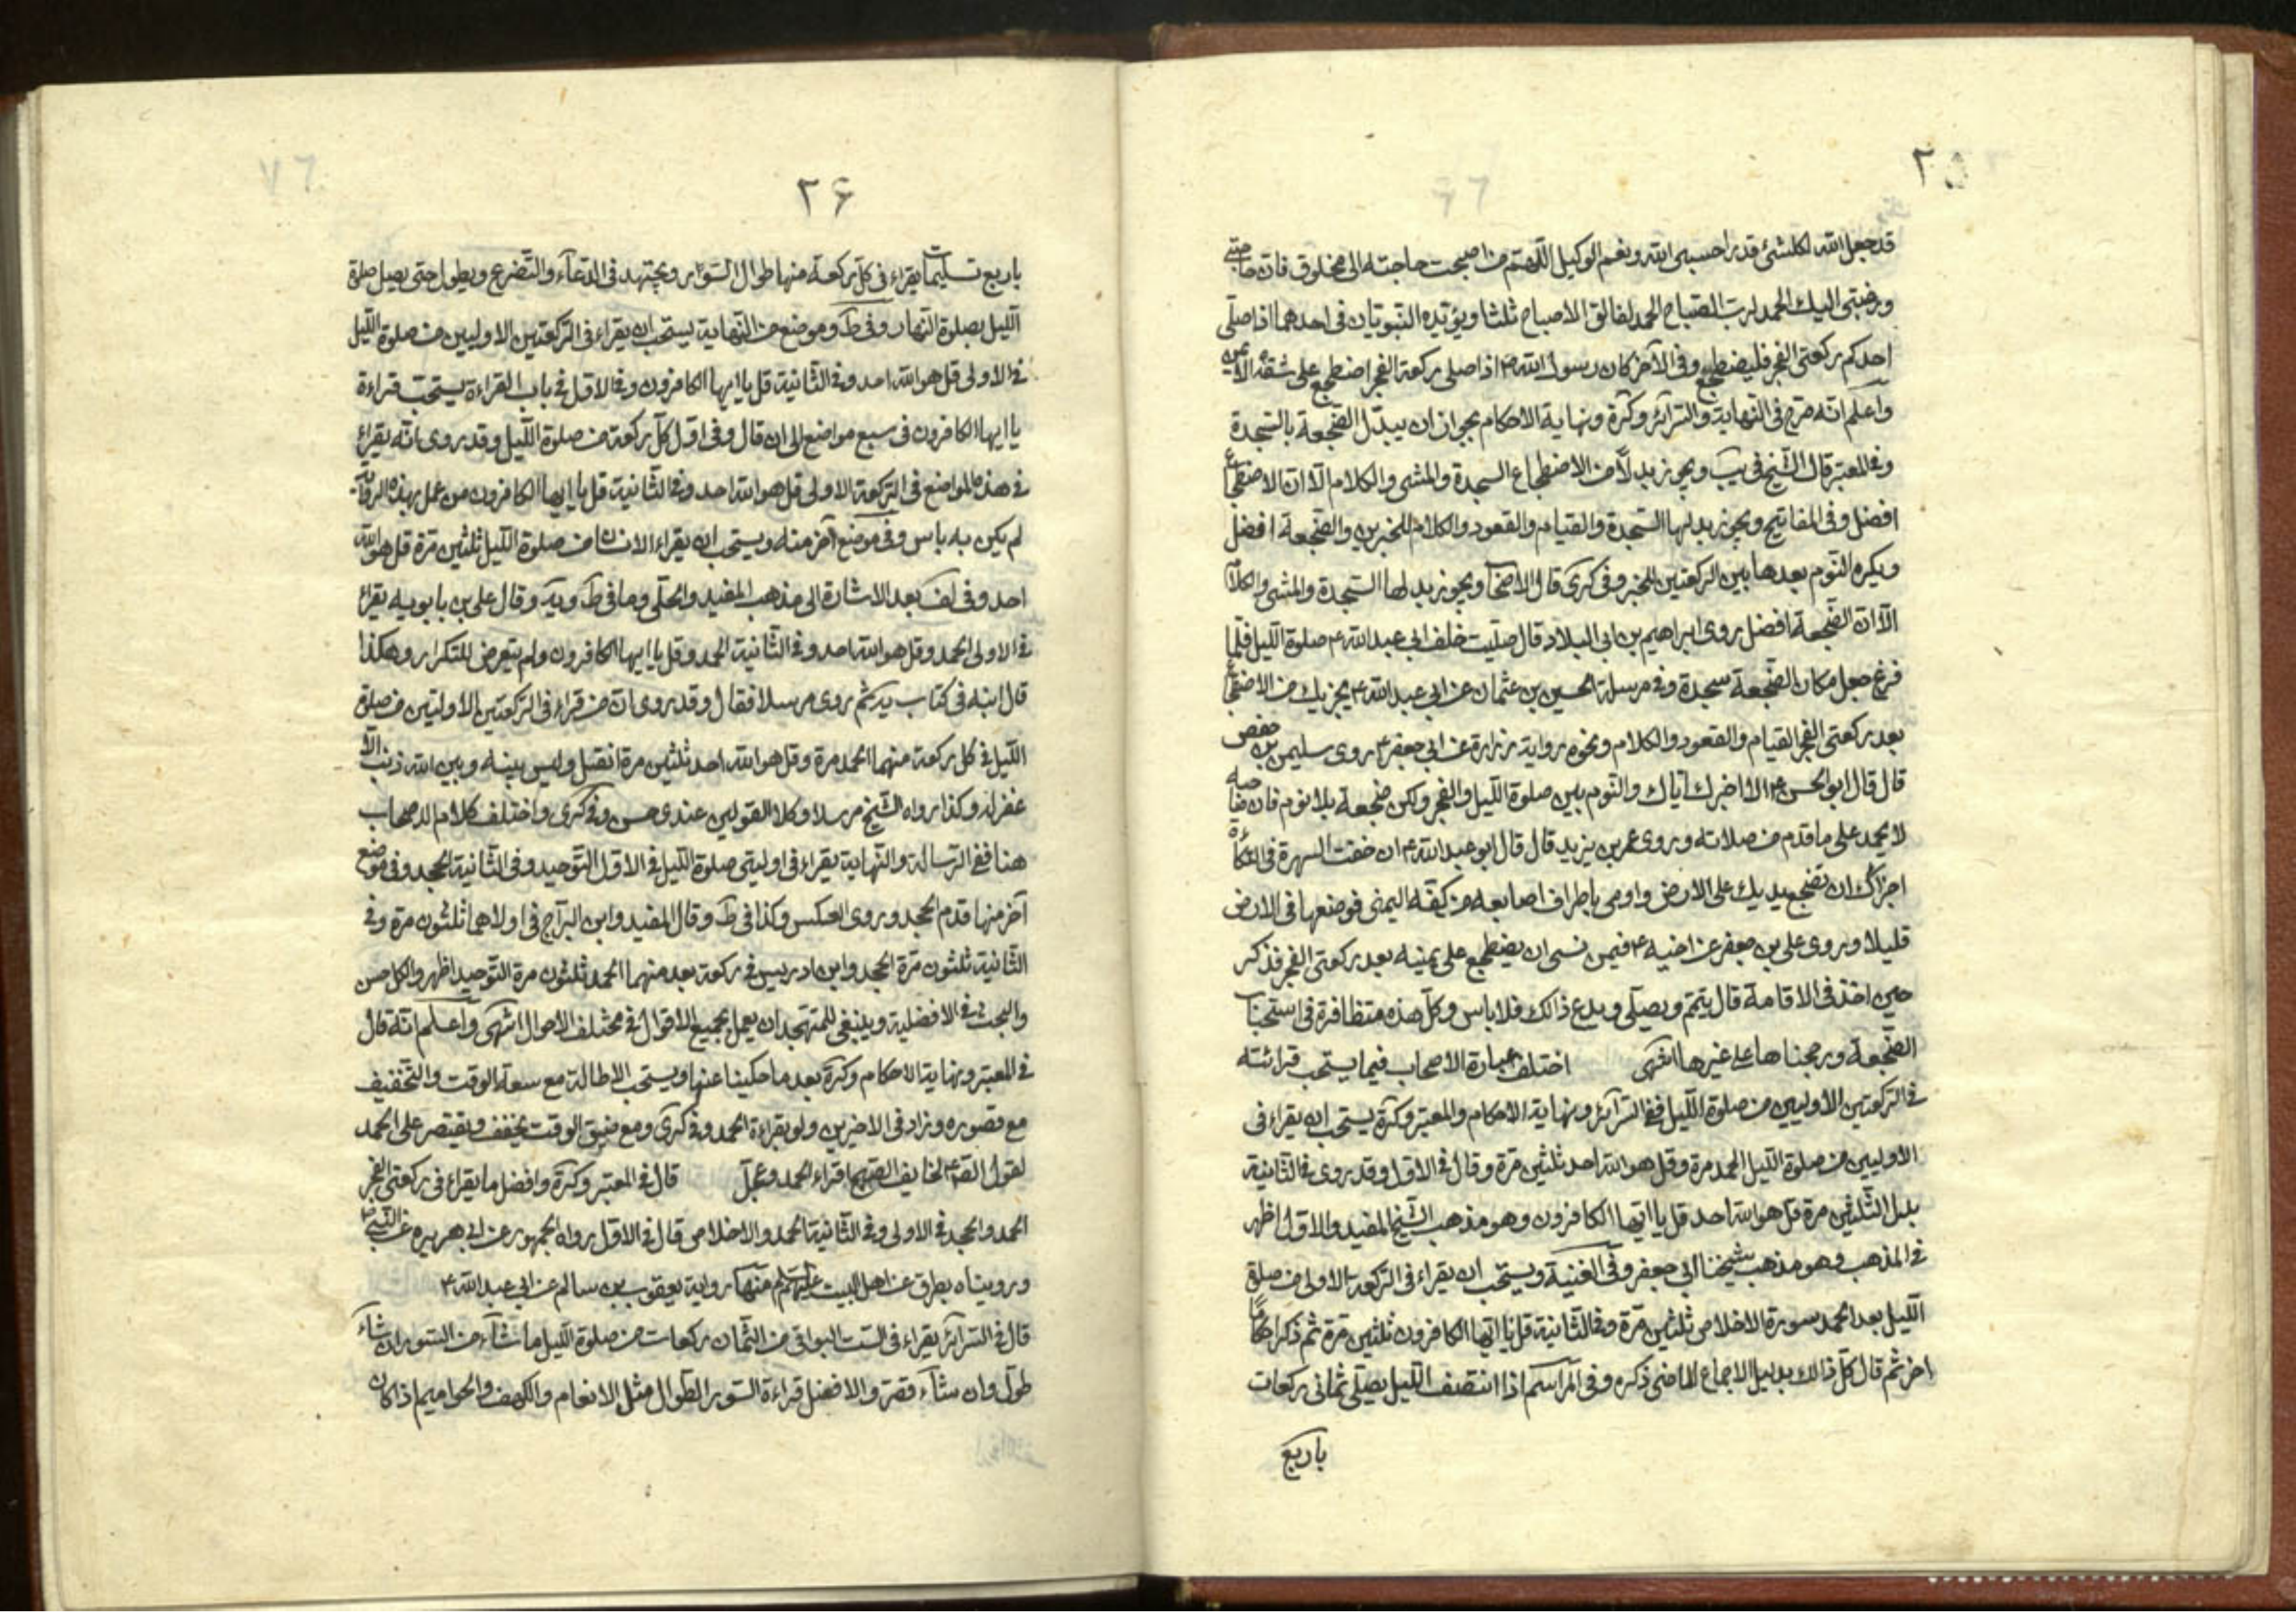 ٢٥
قد جعل الله لكلشئ قدرا حسبى الله ونعم الوكيل اللهم من اصبحت حاجته الى مخلوق فان حاجتى
ورغبتى اليك الحمد لرب الصباح الحمد لفالق الاصباح ثلثا ويؤيده النبويان فى احدهما اذا صلى
احدكم ركعتى الفجر فليضطجع وفى الآخر كان رسول الله ص اذا صلى ركعة الفجر اضطجع على شقه الايمن
واعلم انه صرح فى النهاية والسرائر وكرة ونهاية الاحكام بجواز ان يبدل الضجعة بالسجدة
وفى المعتبر قال الشيخ فى يب ويجوز بدلاً من الاضطجاع السجدة والمشى والكلام الا ان الاضطجاع
افضل وفى المفاتيح ويجوز بدلها السجدة والقيام والقعود والكلام للخبرين والضجعة افضل
ويكره النوم بعدها بين الركعتين للخبر وفى كرى قال الاصحاب ويجوز بدلها السجدة والمشى والكلام
الا ان الضجعة افضل روى ابراهيم بن ابى البلاد قال صليت خلف ابى عبد الله ع صلوة الليل فلما
فرغ جعل مكان الضجعة سجدة وفى مرسلة الحسين بن عثمان عن ابى عبد الله ع يجزيك من الاضطجاع
بعد ركعتى الفجر القيام والقعود والكلام ونحوه رواية زرارة عن ابى جعفر ع روى سليمن بن حفص
قال قال ابو الحسن ع الاخير اياك والنوم بين صلوة الليل والفجر ولكن ضجعة بلا نوم فان صاحبه
لا يحمد على ما قدم من صلاته وروى عمر بن يزيد قال قال ابو عبد الله ع ان خفت الشهرة فى التكأة
اجزاك ان تضجع يديك على الارض واومى باطراف اصابعه من كفه اليمنى فوضعها فى الارض
قليلا وروى على بن جعفر عن اخيه ع فيمن نسى ان يضطجع على يمينه بعد ركعتى الفجر فذكر
حين اخذ فى الاقامة قال يتم ويصلى ويدع ذالك فلا باس وكل هذه متظافرة فى استحباب
الضجعة ورجحناها على غيرها انتهى اختلف عبارة الاصحاب فيما يستحب قرائته
فى الركعتين الاوليين من صلوة الليل ففى السرائر ونهاية الاحكام والمعتبر وكرة يستحب ان يقراء فى
الاوليين من صلوة الليل الحمد مرة وقل هو الله احد ثلثين مرة وقال فى الاول وقد روى فى الثانية
بدل الثلثين مرة قل هو الله احد قل يا ايها الكافرون وهو مذهب الشيخ المفيد والاول اظهر
فى المذهب وهو مذهب شيخنا ابى جعفر وفى الغنية ويستحب ان يقراء فى الركعة الاولى من صلوة
الليل بعد الحمد سورة الاخلاص ثلثين مرة وفى الثانية قل يا ايها الكافرون ثلثين مرة ثم ذكر احكاما
اخر ثم قال كل ذالك بدليل الاجماع الماضى ذكره وفى المراسم اذا انتصف الليل يصلى ثمانى ركعات
باربع
٢۶
باربع تسليمات يقراء فى كل ركعة منها طوال السور ويجتهد فى الدعاء والتضرع ويطول حتى يصل صلوة
الليل بصلوة النهار وفى ط وموضع من النهاية يستحب ان يقراء فى الركعتين الاوليين من صلوة الليل
فى الاولى قل هو الله احد وفى الثانية قل يا ايها الكافرون وفى الاول فى باب القراءة يستحب قراءة
يا ايها الكافرون فى سبع مواضع الى ان قال وفى اول كل ركعة من صلوة الليل وقد روى انه يقراء
فى هذه المواضع فى الركعة الاولى قل هو الله احد وفى الثانية قل يا ايها الكافرون من عمل بهذه الرواية
لم يكن به باس وفى موضع آخر منه ويستحب ان يقراء الانسان صلوة الليل ثلثين مرة قل هو الله
احد وفى لف بعد الاشارة الى مذهب المفيد والحلى وما فى ط ويه وقال على بن بابويه يقراء
فى الاولى الحمد وقل هو الله احد وفى الثانية الحمد وقل يا ايها الكافرون ولم يتعرض للتكرار وهكذا
قال ابنه فى كتاب يه ثم روى مرسلا فقال وقد روى ان من قراء فى الركعتين الاوليين من صلوة
الليل فى كل ركعة منهما الحمد مرة وقل هو الله احد ثلثين مرة انفتل وليس بينه وبين الله ذنب الا
غفر له وكذا رواه الشيخ مرسلا وكلا القولين عندى حسن وفى كرى واختلف كلام الاصحاب
هنا ففى الرسالة والنهاية يقراء فى اوليتى صلوة الليل فى الاول التوحيد وفى الثانية الجحد وفى موضع
آخر منها قدم الجحد وروى العكس وكذا فى ط وقال المفيد وابن البراج فى اولاهما ثلثون مرة وفى
الثانية ثلثون مرة الجحد وابن ادريس فى ركعة بعد منهما الحمد ثلثون مرة التوحيد اظهر والكل حسن
والبحث فى الافضلية وينبغى للمتهجد ان يعمل بجميع الاقوال فى مختلف الاحوال انتهى واعلم انه قال
فى المعتبر ونهاية الاحكام وكرة بعد ما حكينا عنها ويستحب الاطالة مع سعة الوقت والتخفيف
مع قصوره وزاد فى الاخيرين ولو بقراءة الحمد وفى كرى ومع ضيق الوقت يخفف ويقتصر على الحمد
لقول الصادق ع لخايف الصبح اقراء الحمد وعجل قال فى المعتبر وكرة وافضل ما يقراء فى ركعتى الفجر
الحمد والجحد فى الاولى وفى الثانية الحمد والاخلاص قال فى الاول رواه الجمهور عن ابى هريره عن النبى ص
ورويناه بطرق عن اهل البيت عليهم السلام منها رواية يعقوب بن سالم عن ابى عبد الله ع
قال فى السرائر يقراء فى الست البواقى من الثمان ركعات من صلوة الليل ما شاء من السور ان شاء
طول وان شاء قصر والافضل قراءة السور الطوال مثل الانعام والكهف والحواميم اذا كان